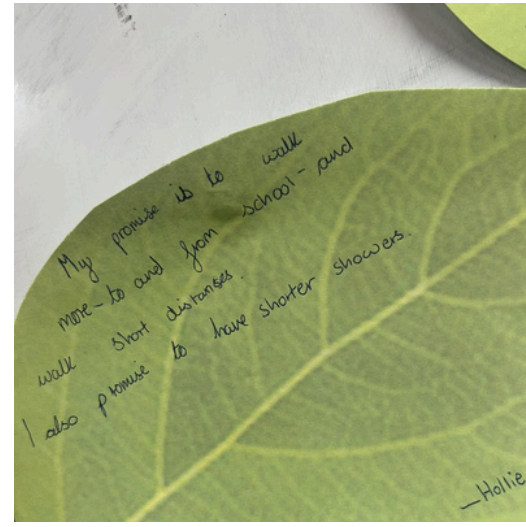 My promise is to walk
more - to and from school - and
walk short distanses.
I also promise to have shorter showers.
—Hollie